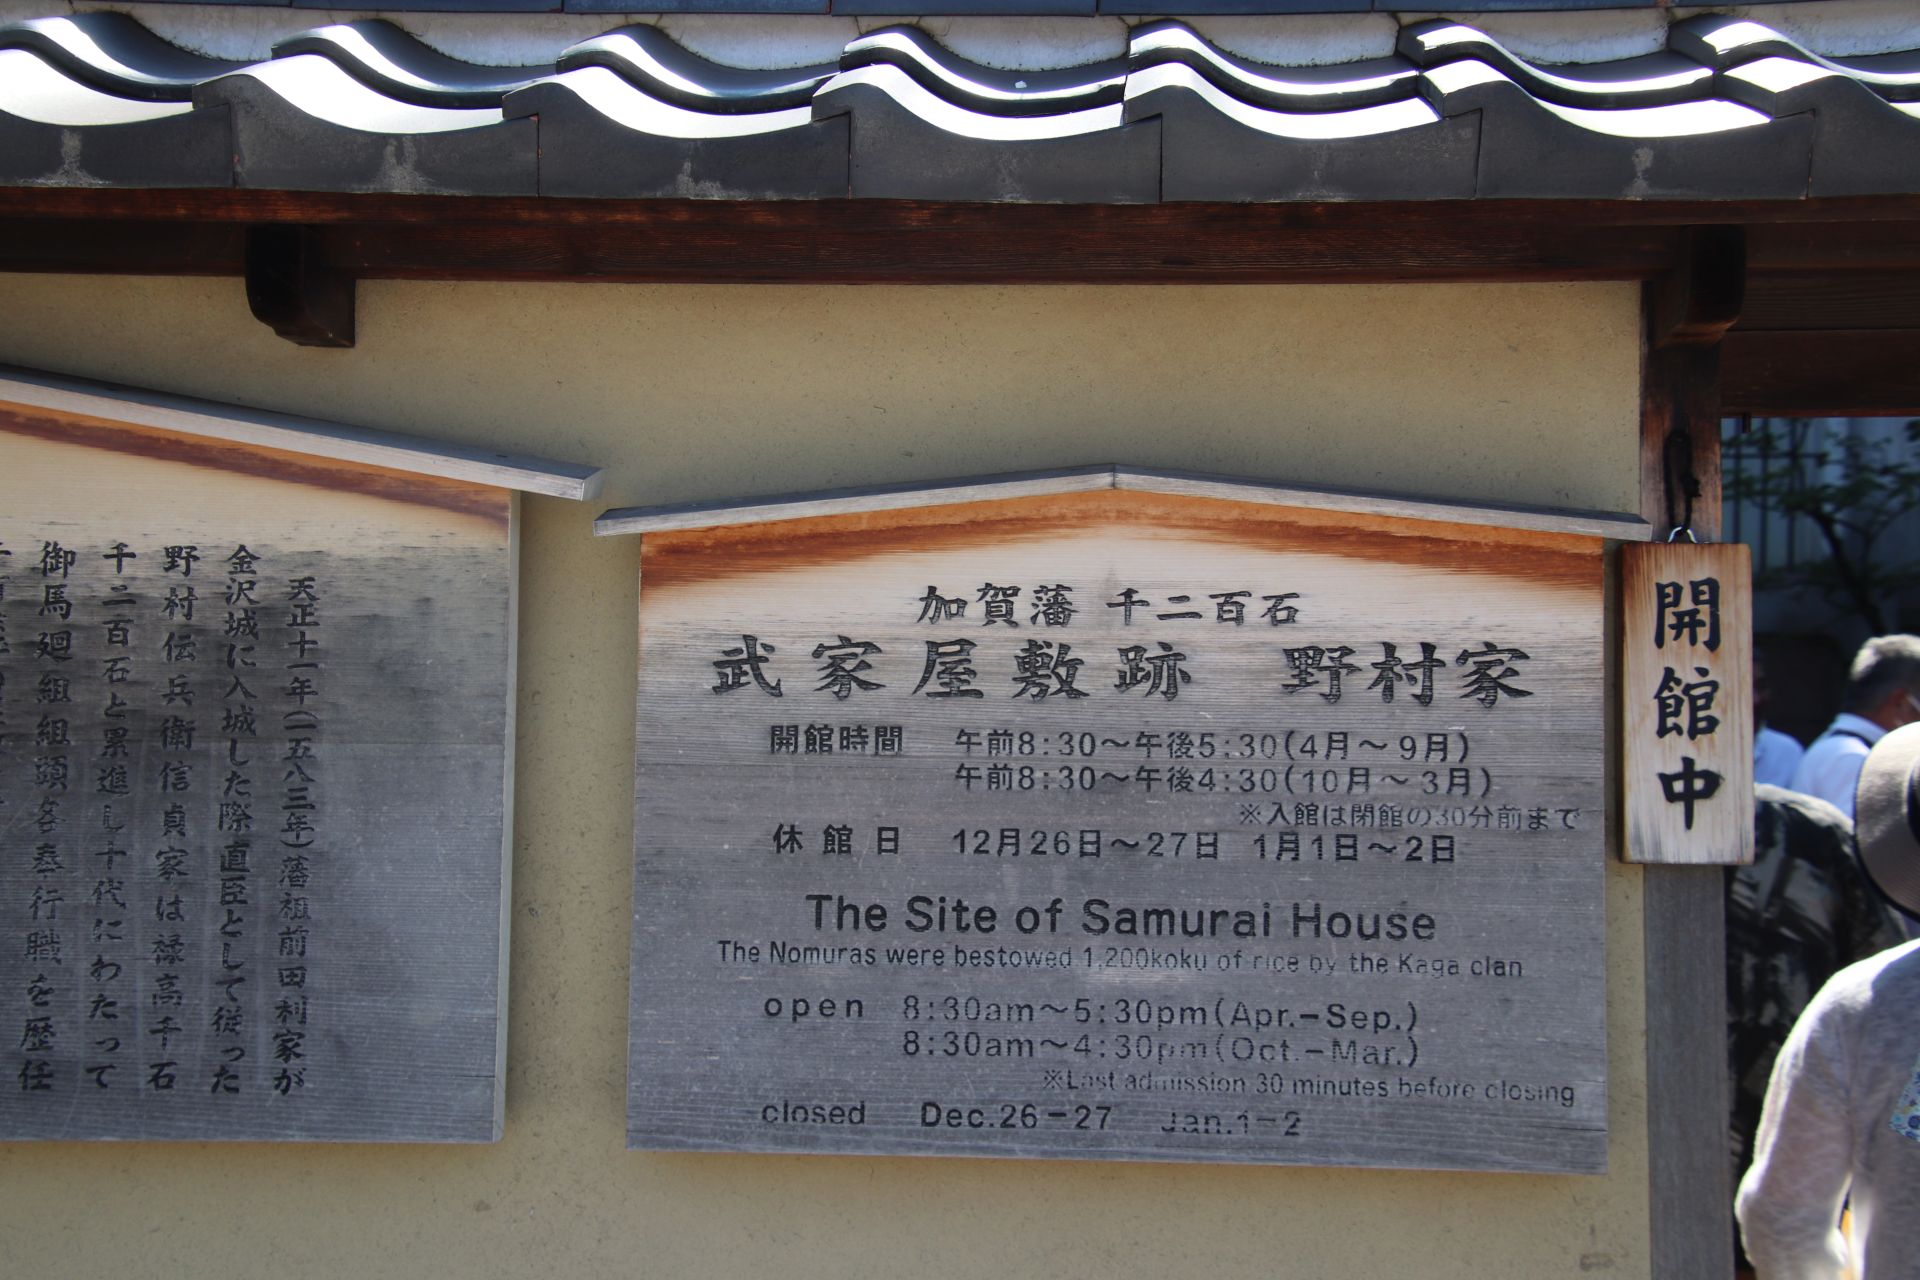 加賀藩 千二百石
武家屋敷跡 野村家
開館時間 午前8:30～午後5:30(4月～9月)
午前8:30～午後4:30(10月～3月)
※入館は閉館の30分前まで
休館日 12月26日～27日 1月1日～2日
The Site of Samurai House
The Nomuras were bestowed 1,200koku of rice by the Kaga clan
open 8:30am～5:30pm(Apr.-Sep.)
8:30am～4:30pm(Oct.-Mar.)
※Last admission 30 minutes before closing
closed Dec.26-27 Jan.1-2
開館中
天正十一年(一五八三年)藩祖前田利家が
金沢城に入城した際直臣として従った
野村伝兵衛信貞家は禄高千石
千二百石と累進し十代にわたって
御馬廻組組頭各奉行職を歴任